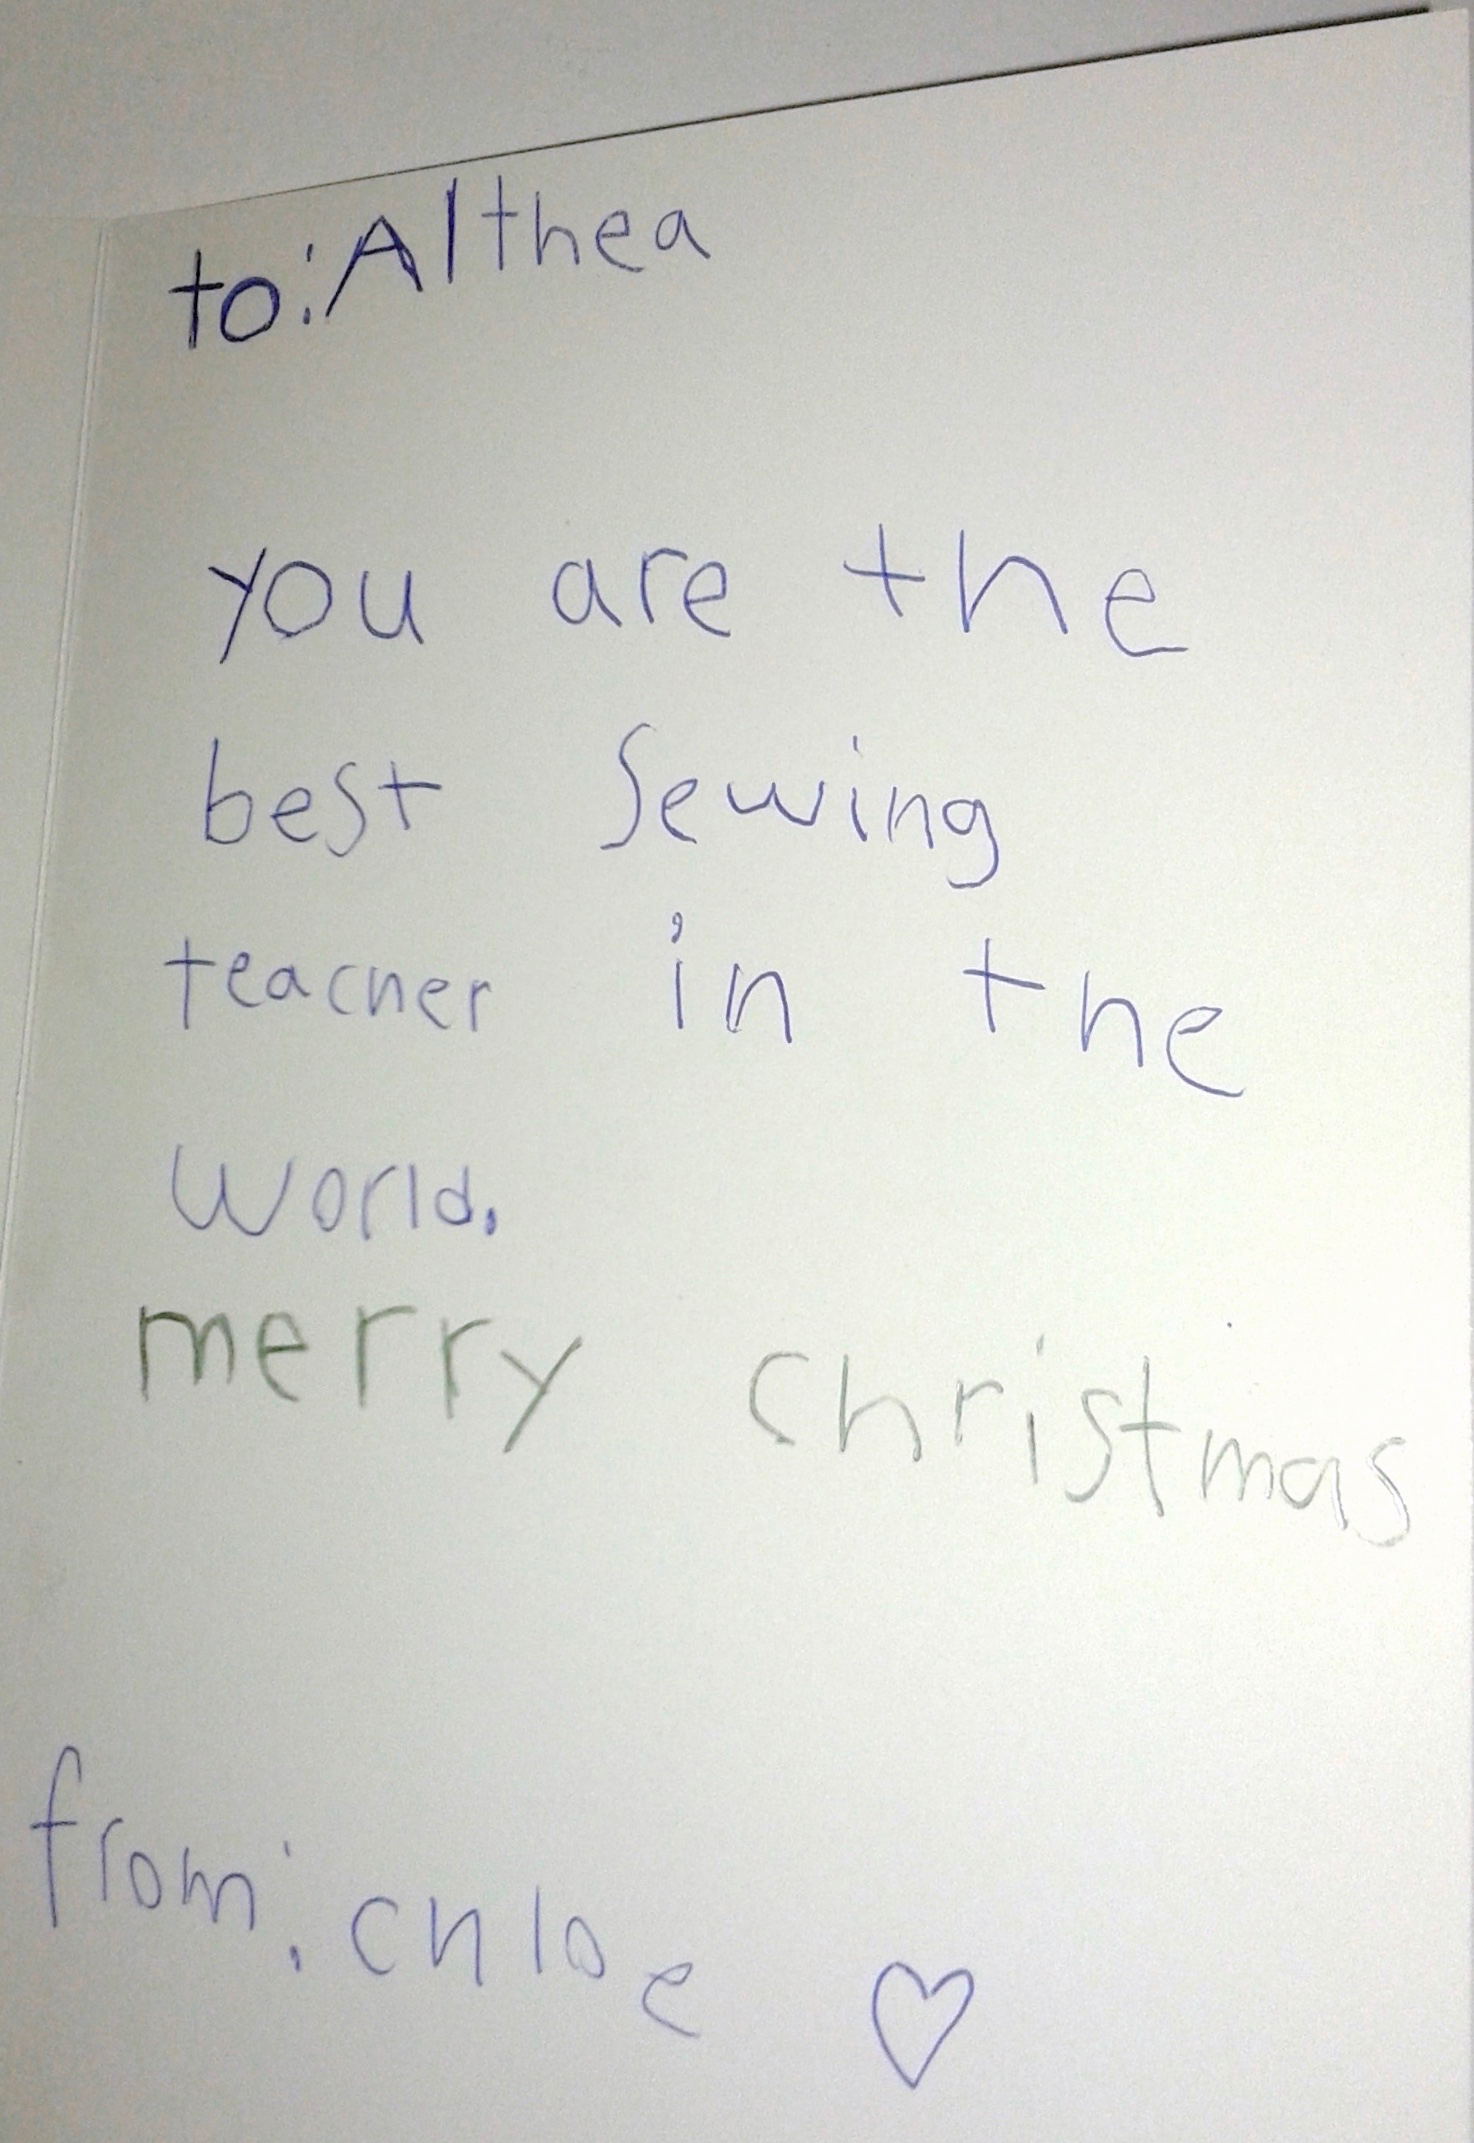 to: Althea
you are the
best sewing
teacher in the
world.
merry christmas
from: chloe ♡